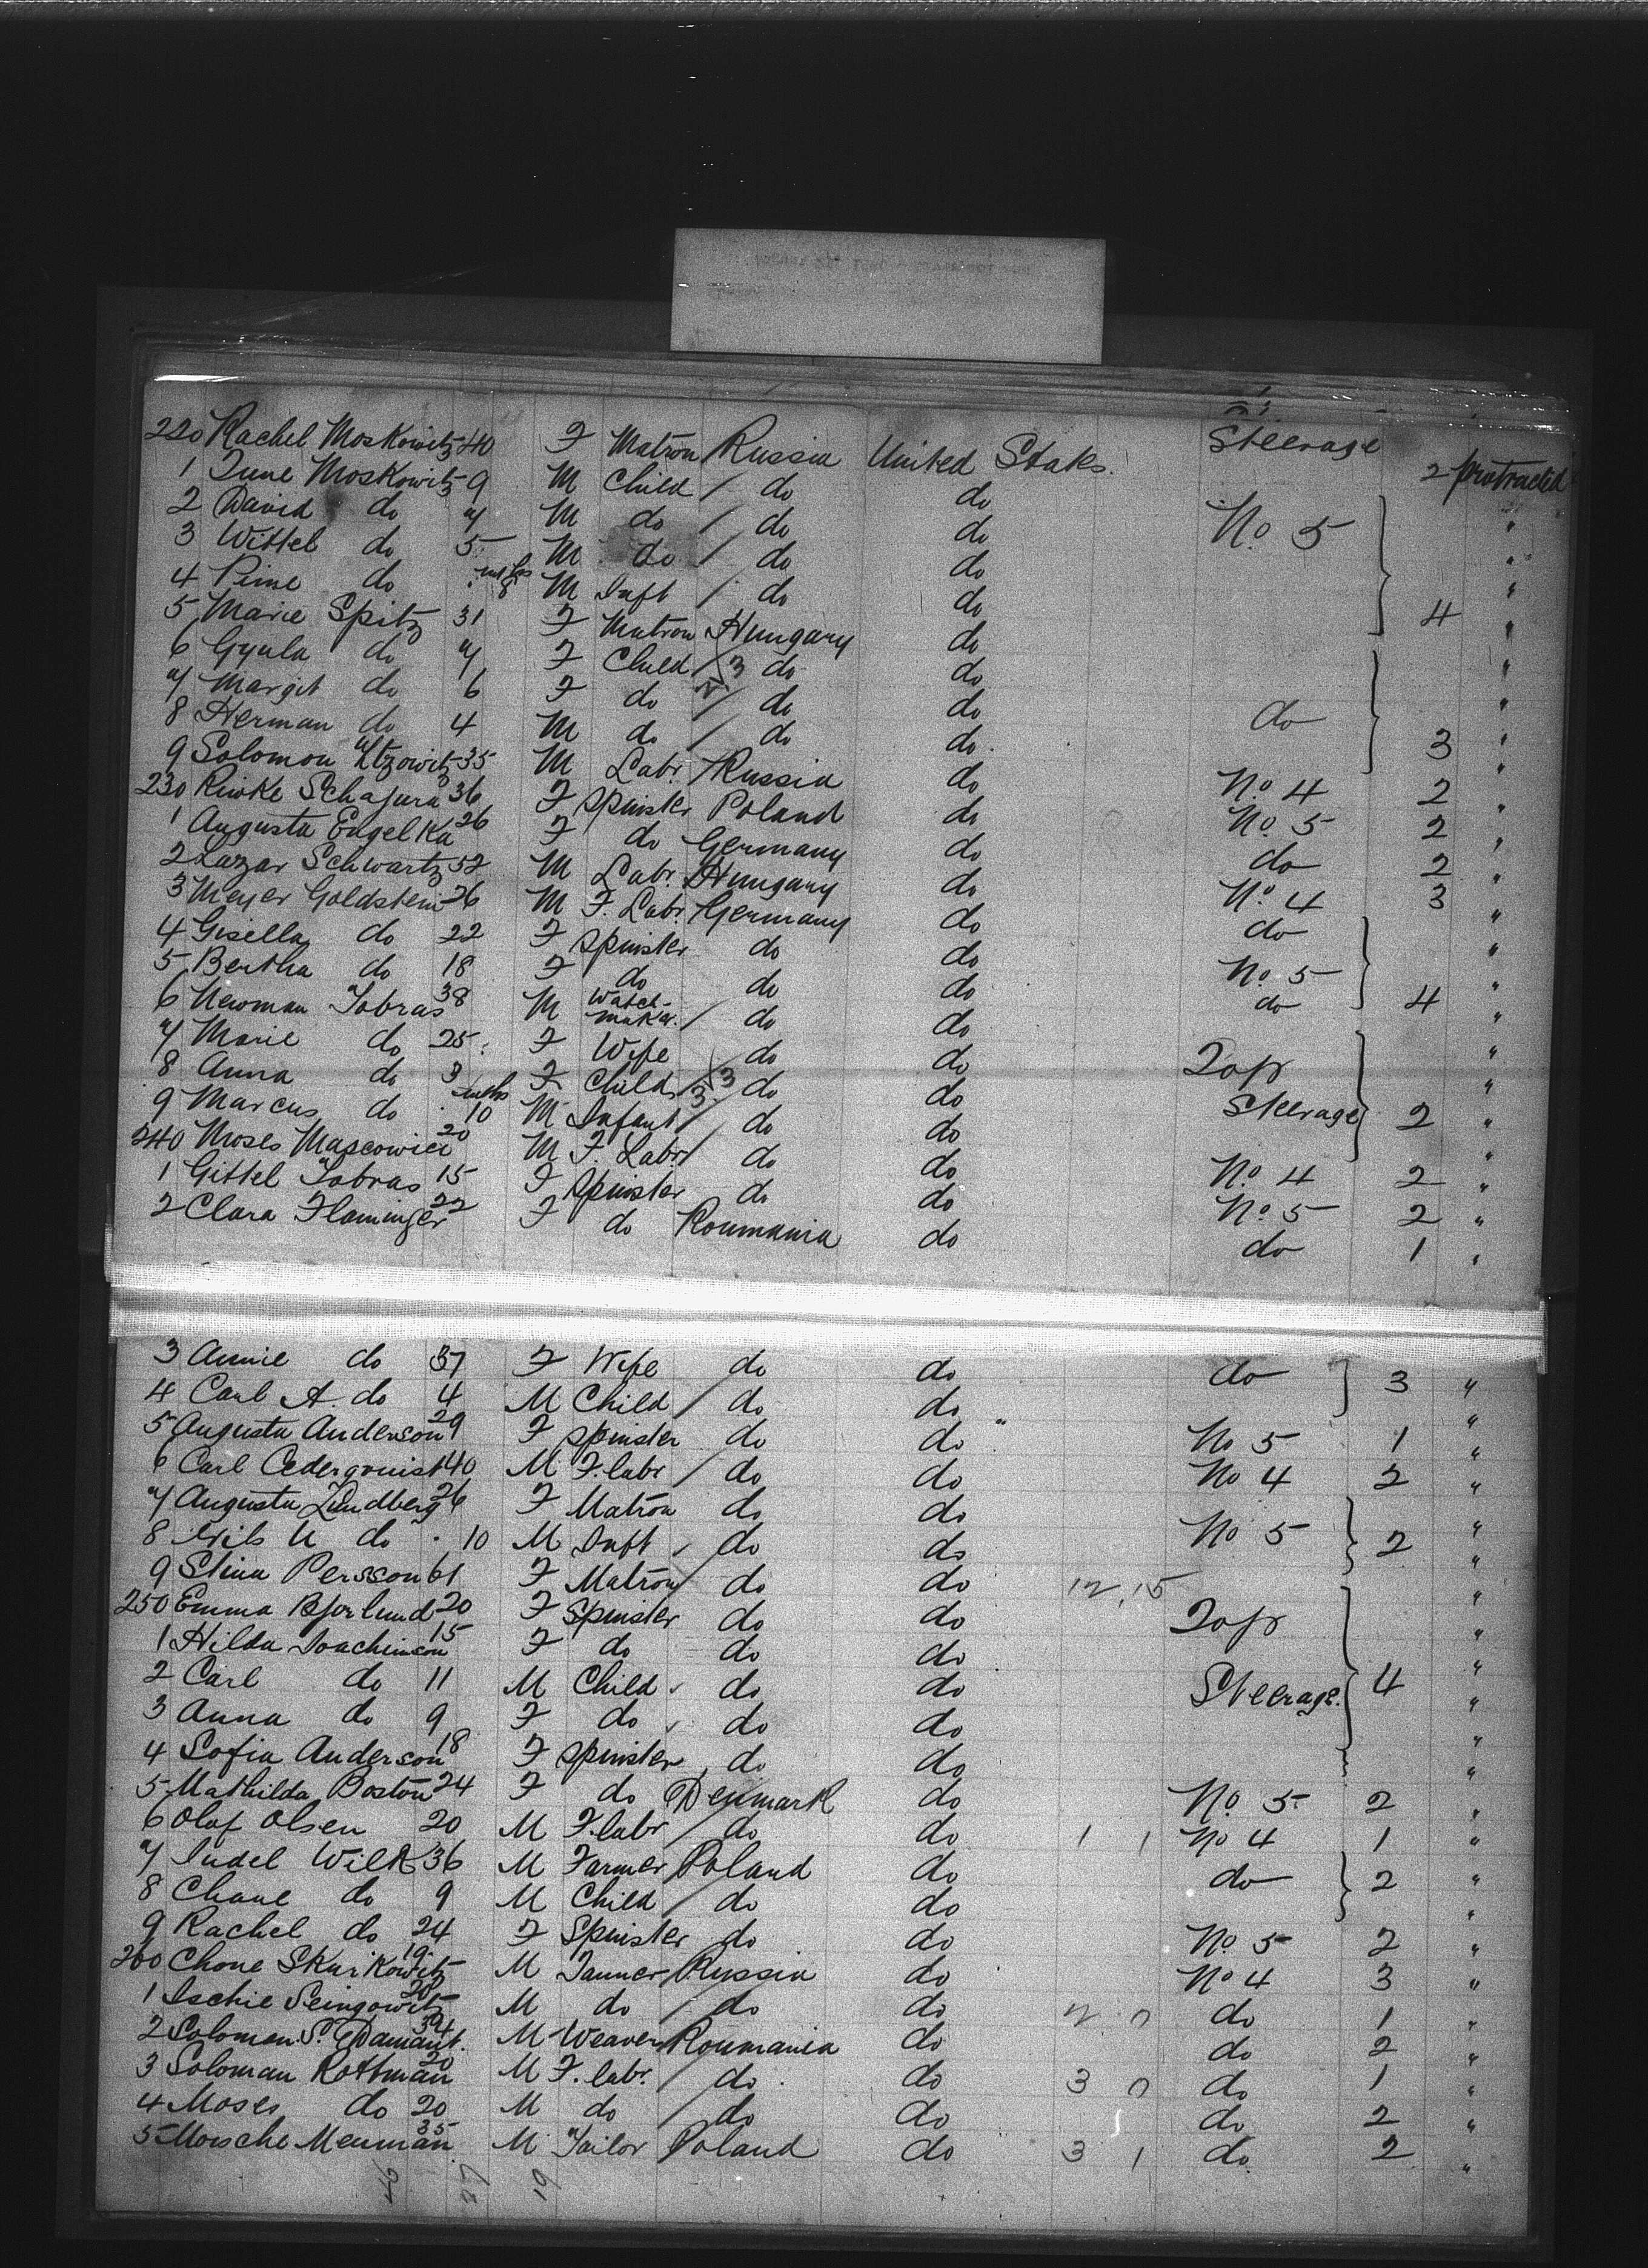 Steerage
220 Rachel Moskowitz 40 F Matron Russia United States. 2 protracted
1 June Moskowitz 9 M Child / do do "
2 David do 7 M do / do do No. 5 "
3 Wittel do 5 M do / do do "
4 Pime do mths 8 M Inft / do do 4 "
5 Marie Spitz 31 F Matron Hungary do "
6 Gyula do 7 F Child / do do "
7 Margit do 6 F do / do do do "
8 Herman do 4 M do / do do 3 "
9 Solomon Itzowitz 35 M Labr. / Russia do No. 4 2 "
230 Riwke Schajura 36 F Spinster Poland do No. 5 2 "
1 Augusta Engelka 26 F do Germany do do 2 "
2 Lazar Schwartz 52 M Labr. Hungary do No. 4 3 "
3 Meyer Goldstein 26 M F. Labr. / Germany do do "
4 Gisella do 22 F Spinster do do No. 5 "
5 Bertha do 18 F do do do do 4 "
6 Newman Tobras 38 M Watch-maker. / do do "
7 Marie do 25 F Wife do do Top "
8 Anna do 3 F Child / do do Steerage "
9 Marcus do mths 10 M Infant / do do 2 "
240 Moses Mascowici 20 M F. Labr / do do No. 4 2 "
1 Gittel Tobras 15 F Spinster do do No. 5 2 "
2 Clara Flaminger 22 F do Roumania do do 1 "
3 Annie do 37 F Wife do do do 3 "
4 Carl A. do 4 M Child / do do "
5 Augusta Anderson 29 F Spinster do do No 5 1 "
6 Carl Cederqvuist 40 M F. labr / do do No 4 2 "
7 Augusta Lundberg 26 F Matron do do No 5 "
8 Nils U do 10 M Inft / do do 2 "
9 Stina Persson 61 F Matron do do "
250 Emma Bjorlund 20 F Spinster do do Top "
1 Hilda Joachimson 15 F do do do "
2 Carl do 11 M Child do do Steerage. 4 "
3 Anna do 9 F do do do "
4 Sofia Anderson 18 F Spinster do do "
5 Mathilda Boston 24 F do Denmark do No. 5 2 "
6 Olaf Olsen 20 M F. labr / do do 1 1 No 4 1 "
7 Judel Wilk 36 M Farmer / Poland do do 2 "
8 Chane do 9 M Child / do do "
9 Rachel do 24 F Spinster do do No. 5 2 "
260 Chone Skurkowitz 19 M Tanner / Russia do No 4 3 "
1 Ischie Seingowitz 20 M do / do do 2 0 do 1 "
2 Solomon S. Damant. 34 M Weaver Roumania do do 2 "
3 Soloman Rottman 20 M F. labr. / do do 3 0 do 1 "
4 Moses do 20 M do / do do do 2 "
5 Mosche Meuman 35 M Tailor Poland do 3 1 do 2 "